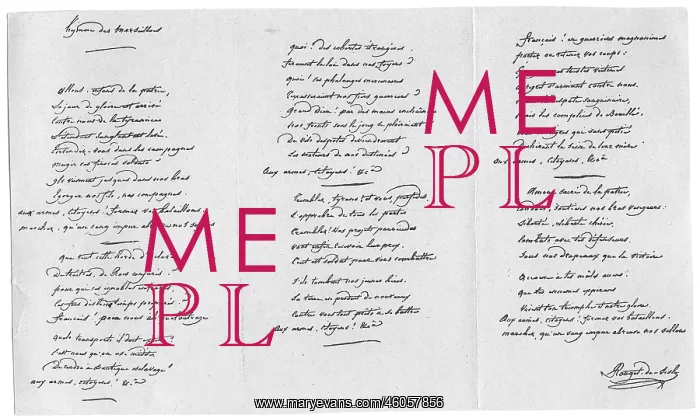 hymne des marseillois
allons! enfans de la patrie,
le jour de gloire est arrivé
contre nous de la tyrannie
l'étendart sanglant est levé.
Entendez-vous dans les campagnes
mugir ces féroces soldats?
ils viennent jusques dans vos bras
Egorger vos fils, vos compagnes.
aux armes, citoyens! formez vos bataillons:
marchez, qu'un sang impur abreuve nos sillons
Que veut cette horde d'esclaves
De traitres, de Rois conjurés?
pour qui ces ignobles entraves
français! pour nous ah! quel outrage
Quels transports il doit
c'est nous qu'on ose méditer
De rendre à l'antique esclavage!
aux armes, citoyens! &ca
quoi! des cohortes étrangeres
feraient la loi dans nos foyers?
quoi! ces phalanges mercenaires
terrasseraient nos fiers guerriers?
Grand Dieu! par des mains enchainées
nos fronts sous le joug se ploieraient
De vils despotes deviendraient
Les maitres de nos destinées?
Aux armes, citoyens! &ca
Tremblez, tyrans! et vous, perfides,
L'opprobre de tous les partis
Tremblez! vos projets parricides
vont enfin recevoir leur prix.
tout est soldat pour vous combattre
S'ils tombent nos jeunes héros.
La terre en produit de nouveaux
contre vous tout prêts à se battre
Aux armes, citoyens! &ca
français! en guerriers magnanimes
portez ou retenez vos coups:
victimes
s'armant contre nous.
sanguinaire,
les complices de Bouillé,
qui sans pitié
Déchirent le sein de leur mere
aux armes, citoyens, &ca
Amour sacré de la patrie
conduis, soutiens nos bras vengeurs:
Liberté, liberté chérie,
combats avec tes défenseurs.
Sous nos drapeaux que la victoire
accoure à tes mâles accens:
que tes ennemis expirans
voient ton triomphe et notre gloire.
Aux armes, citoyens! formez vos bataillons:
marchez, qu'un sang impur abreuve nos sillons
Rouget de Lisle
ME
PL
ME
PL
www.maryevans.com/46057856